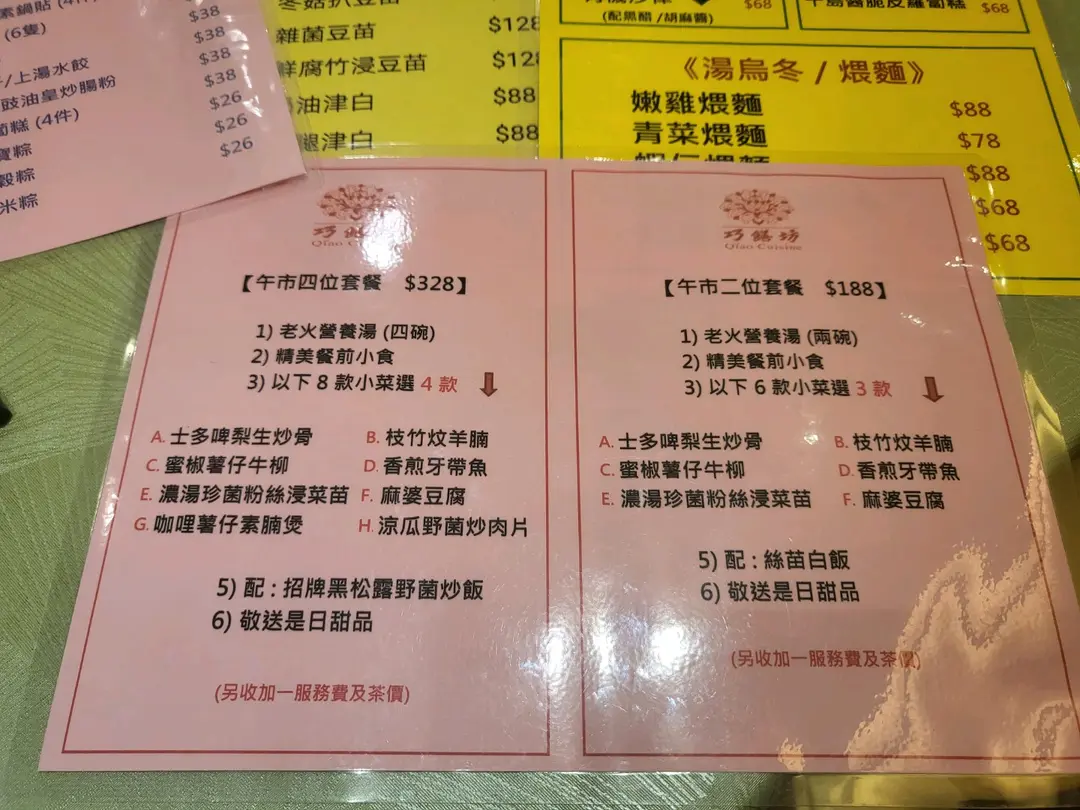 素鍋貼
(6隻)
上湯水餃
豉油皇炒腸粉
糕 (4件)
粽
米粽
$38
$38
$38
$38
$26
$26
$26
雜菌豆苗
$128
鮮腐竹浸豆苗
油津白
$88
津白
$88
(配黑醋 /胡麻醬)
$68
千島醬脆皮蘿蔔糕
$68
《湯烏冬 / 煨麵》
嫩雞煨麵
$88
青菜煨麵
$78
蝦仁煨麵
$88
$68
$68
Qiao C
【午市四位套餐 $328】
1) 老火營養湯 (四碗)
2) 精美餐前小食
3) 以下 8 款小菜選 4 款
A. 士多啤梨生炒骨 B. 枝竹炆羊腩
C. 蜜椒薯仔牛柳 D. 香煎牙帶魚
E. 濃湯珍菌粉絲浸菜苗 F. 麻婆豆腐
G. 咖哩薯仔素腩煲 H. 涼瓜野菌炒肉片
5) 配 : 招牌黑松露野菌炒飯
6) 敬送是日甜品
(另收加一服務費及茶價)
巧饍坊
Qiao Cuisine
【午市二位套餐 $188】
1) 老火營養湯 (兩碗)
2) 精美餐前小食
3) 以下 6 款小菜選 3 款
A. 士多啤梨生炒骨 B. 枝竹炆羊腩
C. 蜜椒薯仔牛柳 D. 香煎牙帶魚
E. 濃湯珍菌粉絲浸菜苗 F. 麻婆豆腐
5) 配 : 絲苗白飯
6) 敬送是日甜品
(另收加一服務費及茶價)